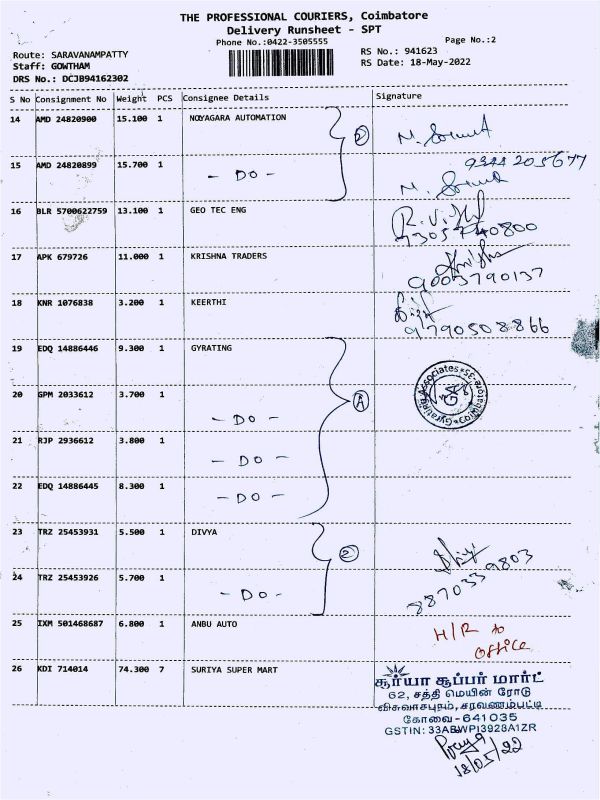 THE PROFESSIONAL COURIERS, Coimbatore
Delivery Runsheet - SPT
Phone No.:0422-3505555
Page No.:2
Route: SARAVANAMPATTY
RS No.: 941623
Staff: GOWTHAM
RS Date: 18-May-2022
DRS No.: DCJB94162302
S No Consignment No Weight PCS Consignee Details Signature
14 AMD 24820900 15.100 1 NOYAGARA AUTOMATION
2
9344205677
15 AMD 24820899 15.700 1
- DO -
16 BLR 5700622759 13.100 1 GEO TEC ENG
17 APK 679726 11.000 1 KRISHNA TRADERS
9003790137
18 KNR 1076838 3.200 1 KEERTHI
9790508866
19 EDQ 14886446 9.300 1 GYRATING
20 GPM 2033612 3.700 1
- DO -
21 RJP 2936612 3.800 1
- DO -
22 EDQ 14886445 8.300 1
- DO -
23 TRZ 25453931 5.500 1 DIVYA
2
8870339803
24 TRZ 25453926 5.700 1
- DO -
25 IXM 501468687 6.800 1 ANBU AUTO
H/R to
office
26 KDI 714014 74.300 7 SURIYA SUPER MART
சூர்யா சூப்பர் மார்ட்
62, சத்தி மெயின் ரோடு
விசுவாசபுரம், சரவணம்பட்டி
கோவை - 641035
GSTIN: 33ABWPI3928A1ZR
18/05/22